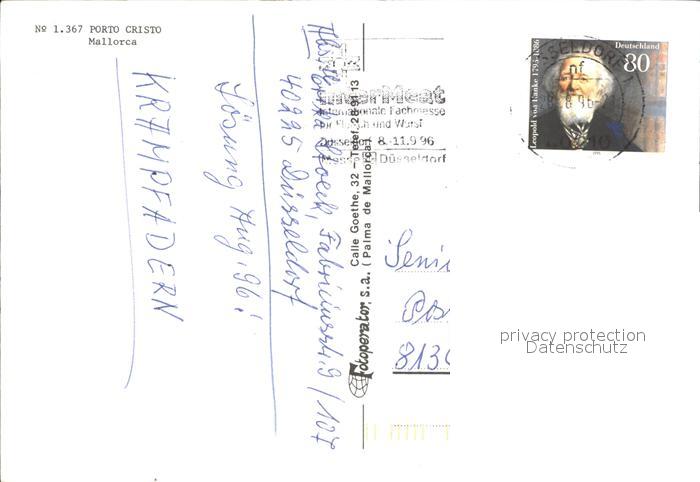 Nº 1.367 PORTO CRISTO
Mallorca
KRAMPFADERN
Lösung Aug. 96:
40225 Düsseldorf
Fabriciusstr. 9/107
InterMeat
Internationale Fachmesse
für Fleisch und Wurst
Düsseldorf 8.-11.9.96
Messe Düsseldorf
Fotoperator, s.a. Calle Goethe, 32 - Telef. 28 91 13
(Palma de Mallorca)
Deutschland
80
Leopold von Ranke 1795-1886
Seni
Pos
privacy protection
Datenschutz